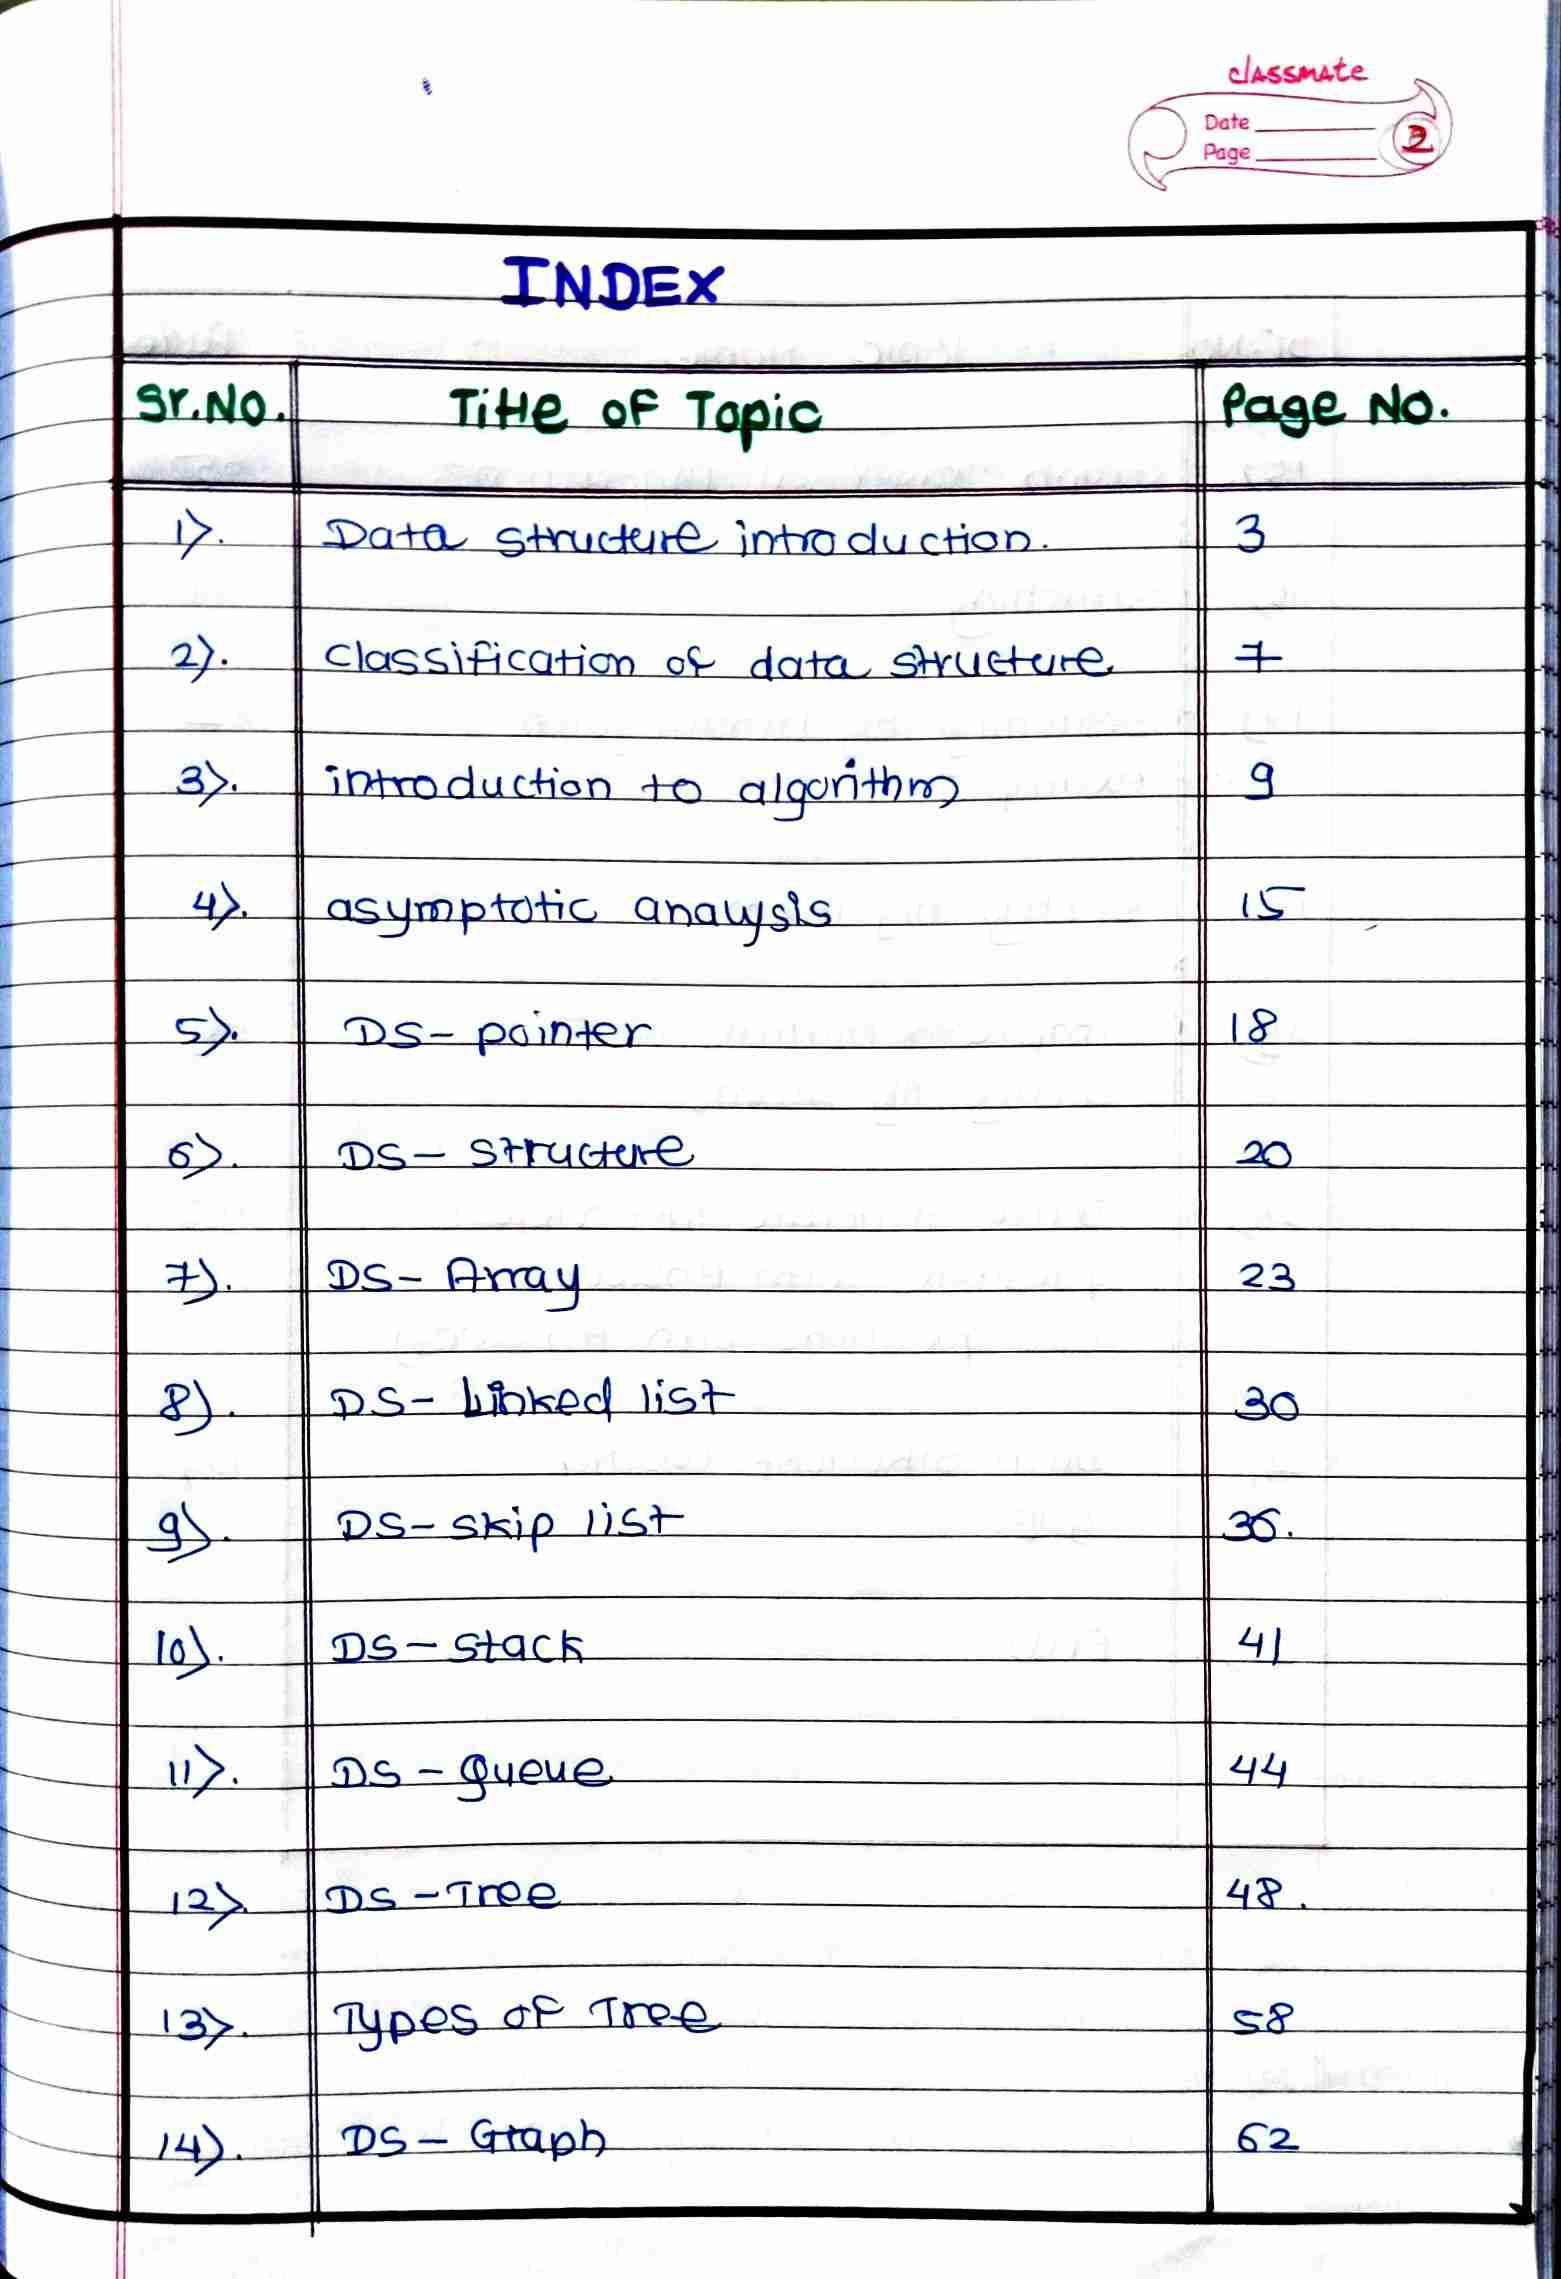 classmate
Date
Page
2
INDEX
Sr.No. Title of Topic Page No.
1). Data structure introduction. 3
2). classification of data structure 7
3). introduction to algorithm 9
4). asymptotic analysis 15
5). DS- pointer 18
6). DS- structure 20
7). DS- Array 23
8). DS- Linked list 30
9). DS- skip list 36.
10). DS- stack 41
11). DS- queue 44
12). DS -Tree 48.
13). Types of Tree 58
14). DS- Graph 62